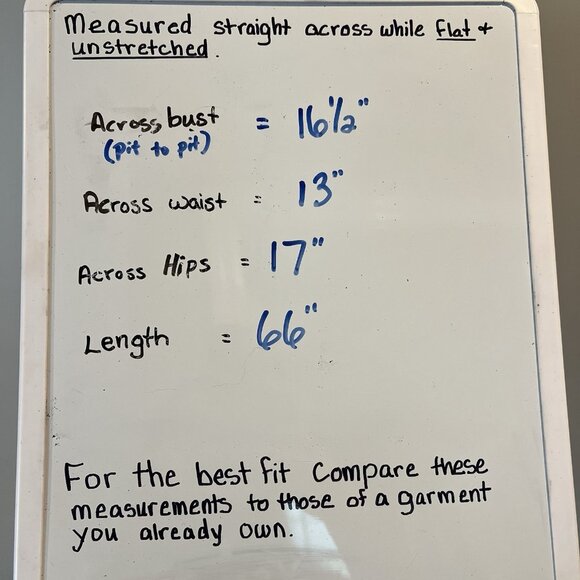 Measured straight across while flat +
unstretched.
Across bust = 16 1/2"
(pit to pit)
Across waist = 13"
Across Hips = 17"
Length = 66"
For the best fit Compare these
measurements to those of a garment
you already own.